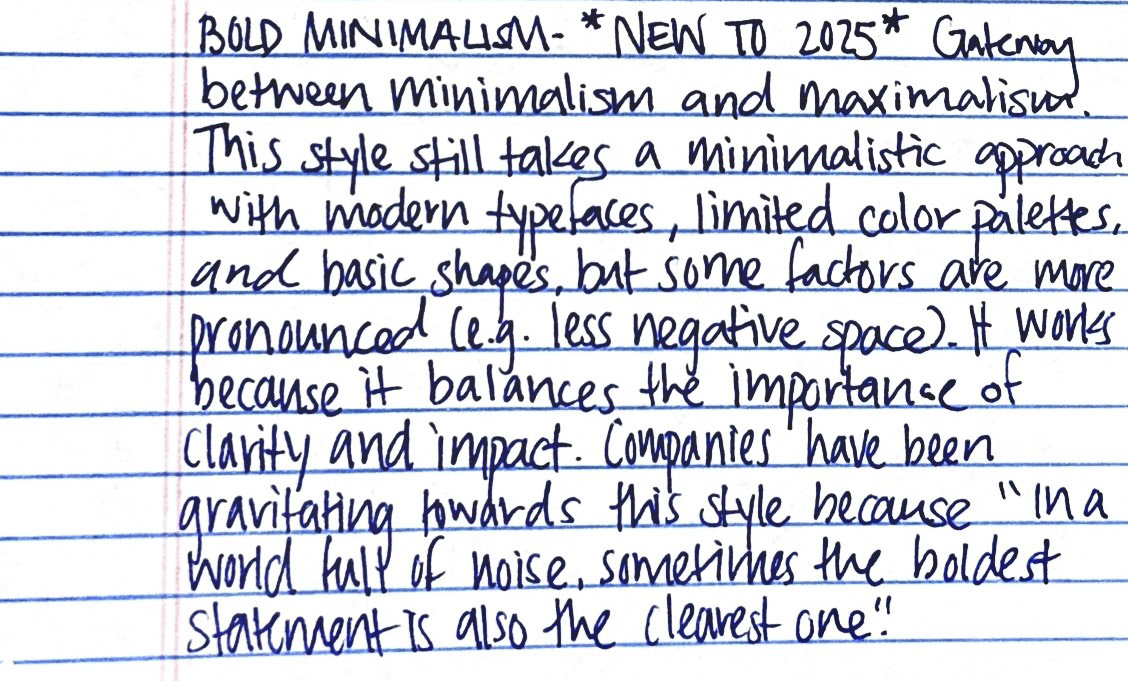 BOLD MINIMALISM- *NEW TO 2025* Gateway
between minimalism and maximalism.
This style still takes a minimalistic approach
with modern typefaces, limited color palettes,
and basic shapes, but some factors are more
pronounced (e.g. less negative space). It works
because it balances the importance of
clarity and impact. Companies have been
gravitating towards this style because "In a
world full of noise, sometimes the boldest
statement is also the clearest one".